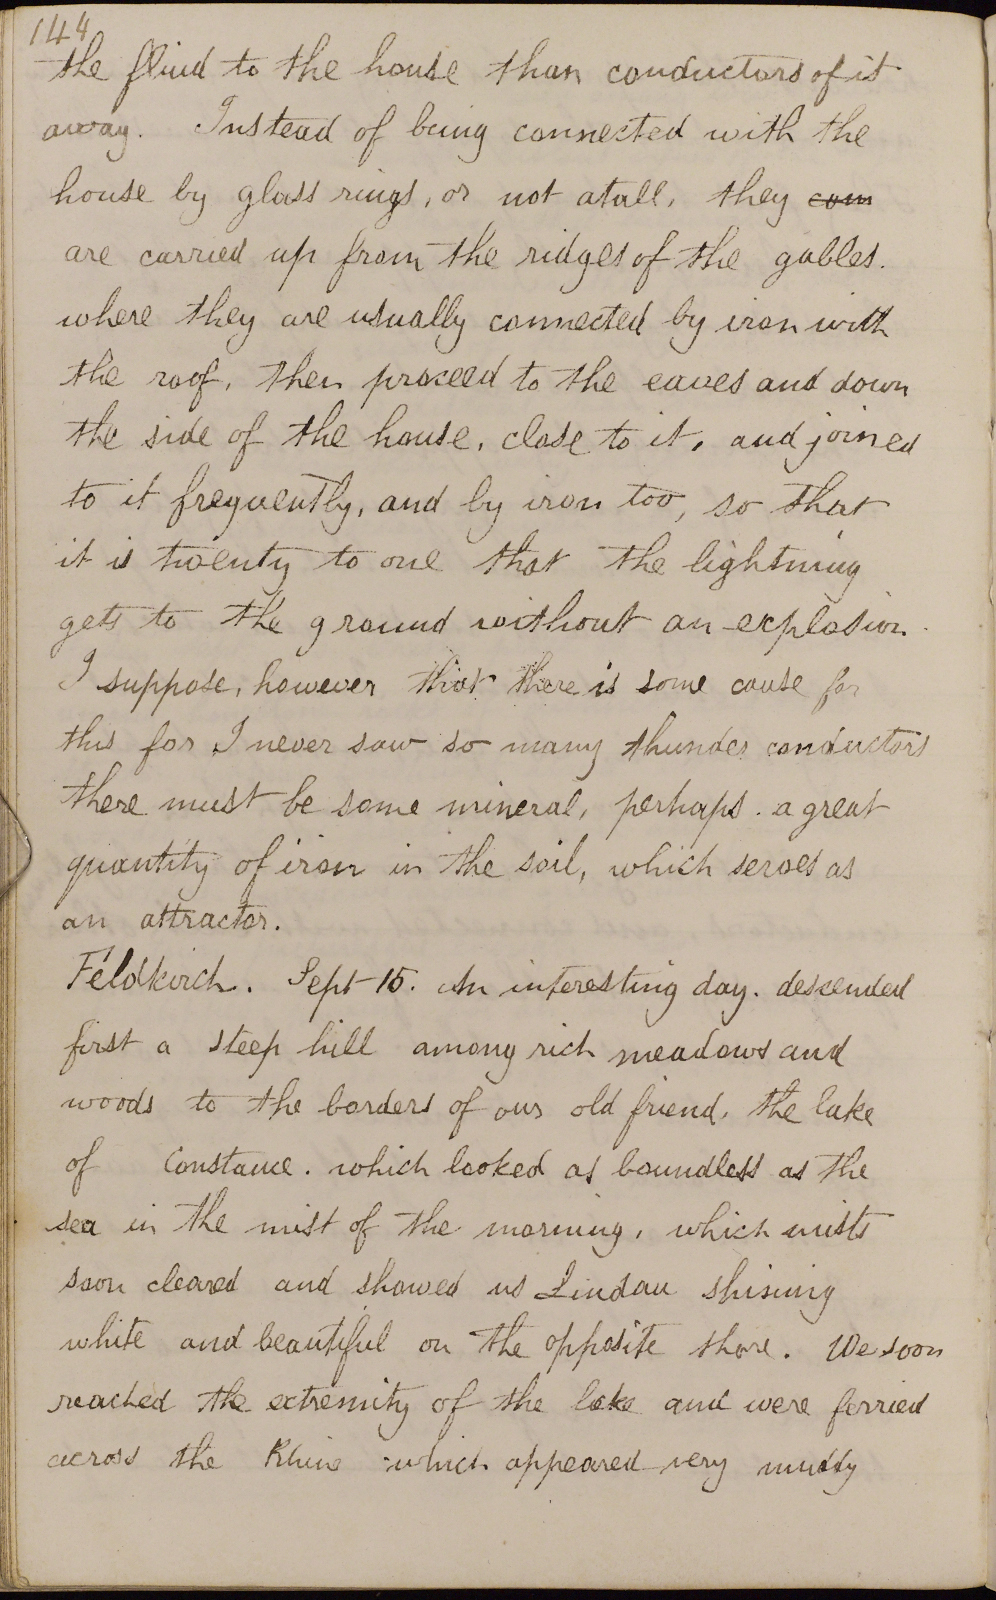 144
the fluid to the house than conductors of it
away. Instead of being connected with the
house by glass rings, or not atall, they com
are carried up from the ridges of the gables.
where they are usually connected by iron with
the roof, then proceed to the eaves and down
the side of the house, close to it, and joined
to it frequently, and by iron too, so that
it is twenty to one that the lightning
gets to the ground without an explosion.
I suppose, however that there is some cause for
this for I never saw so many thunder conductors
there must be some mineral, perhaps. a great
quantity of iron in the soil, which serves as
an attractor.
Feldkirch. Sept 15. An interesting day. descended
first a steep hill among rich meadows and
woods to the borders of our old friend, the lake
of Constance. which looked as boundless as the
sea in the mist of the morning, which mists
soon cleared and showed us Lindau shining
white and beautiful on the opposite shore. We soon
reached the extremity of the lake and were ferried
across the Rhine which appeared very muddy